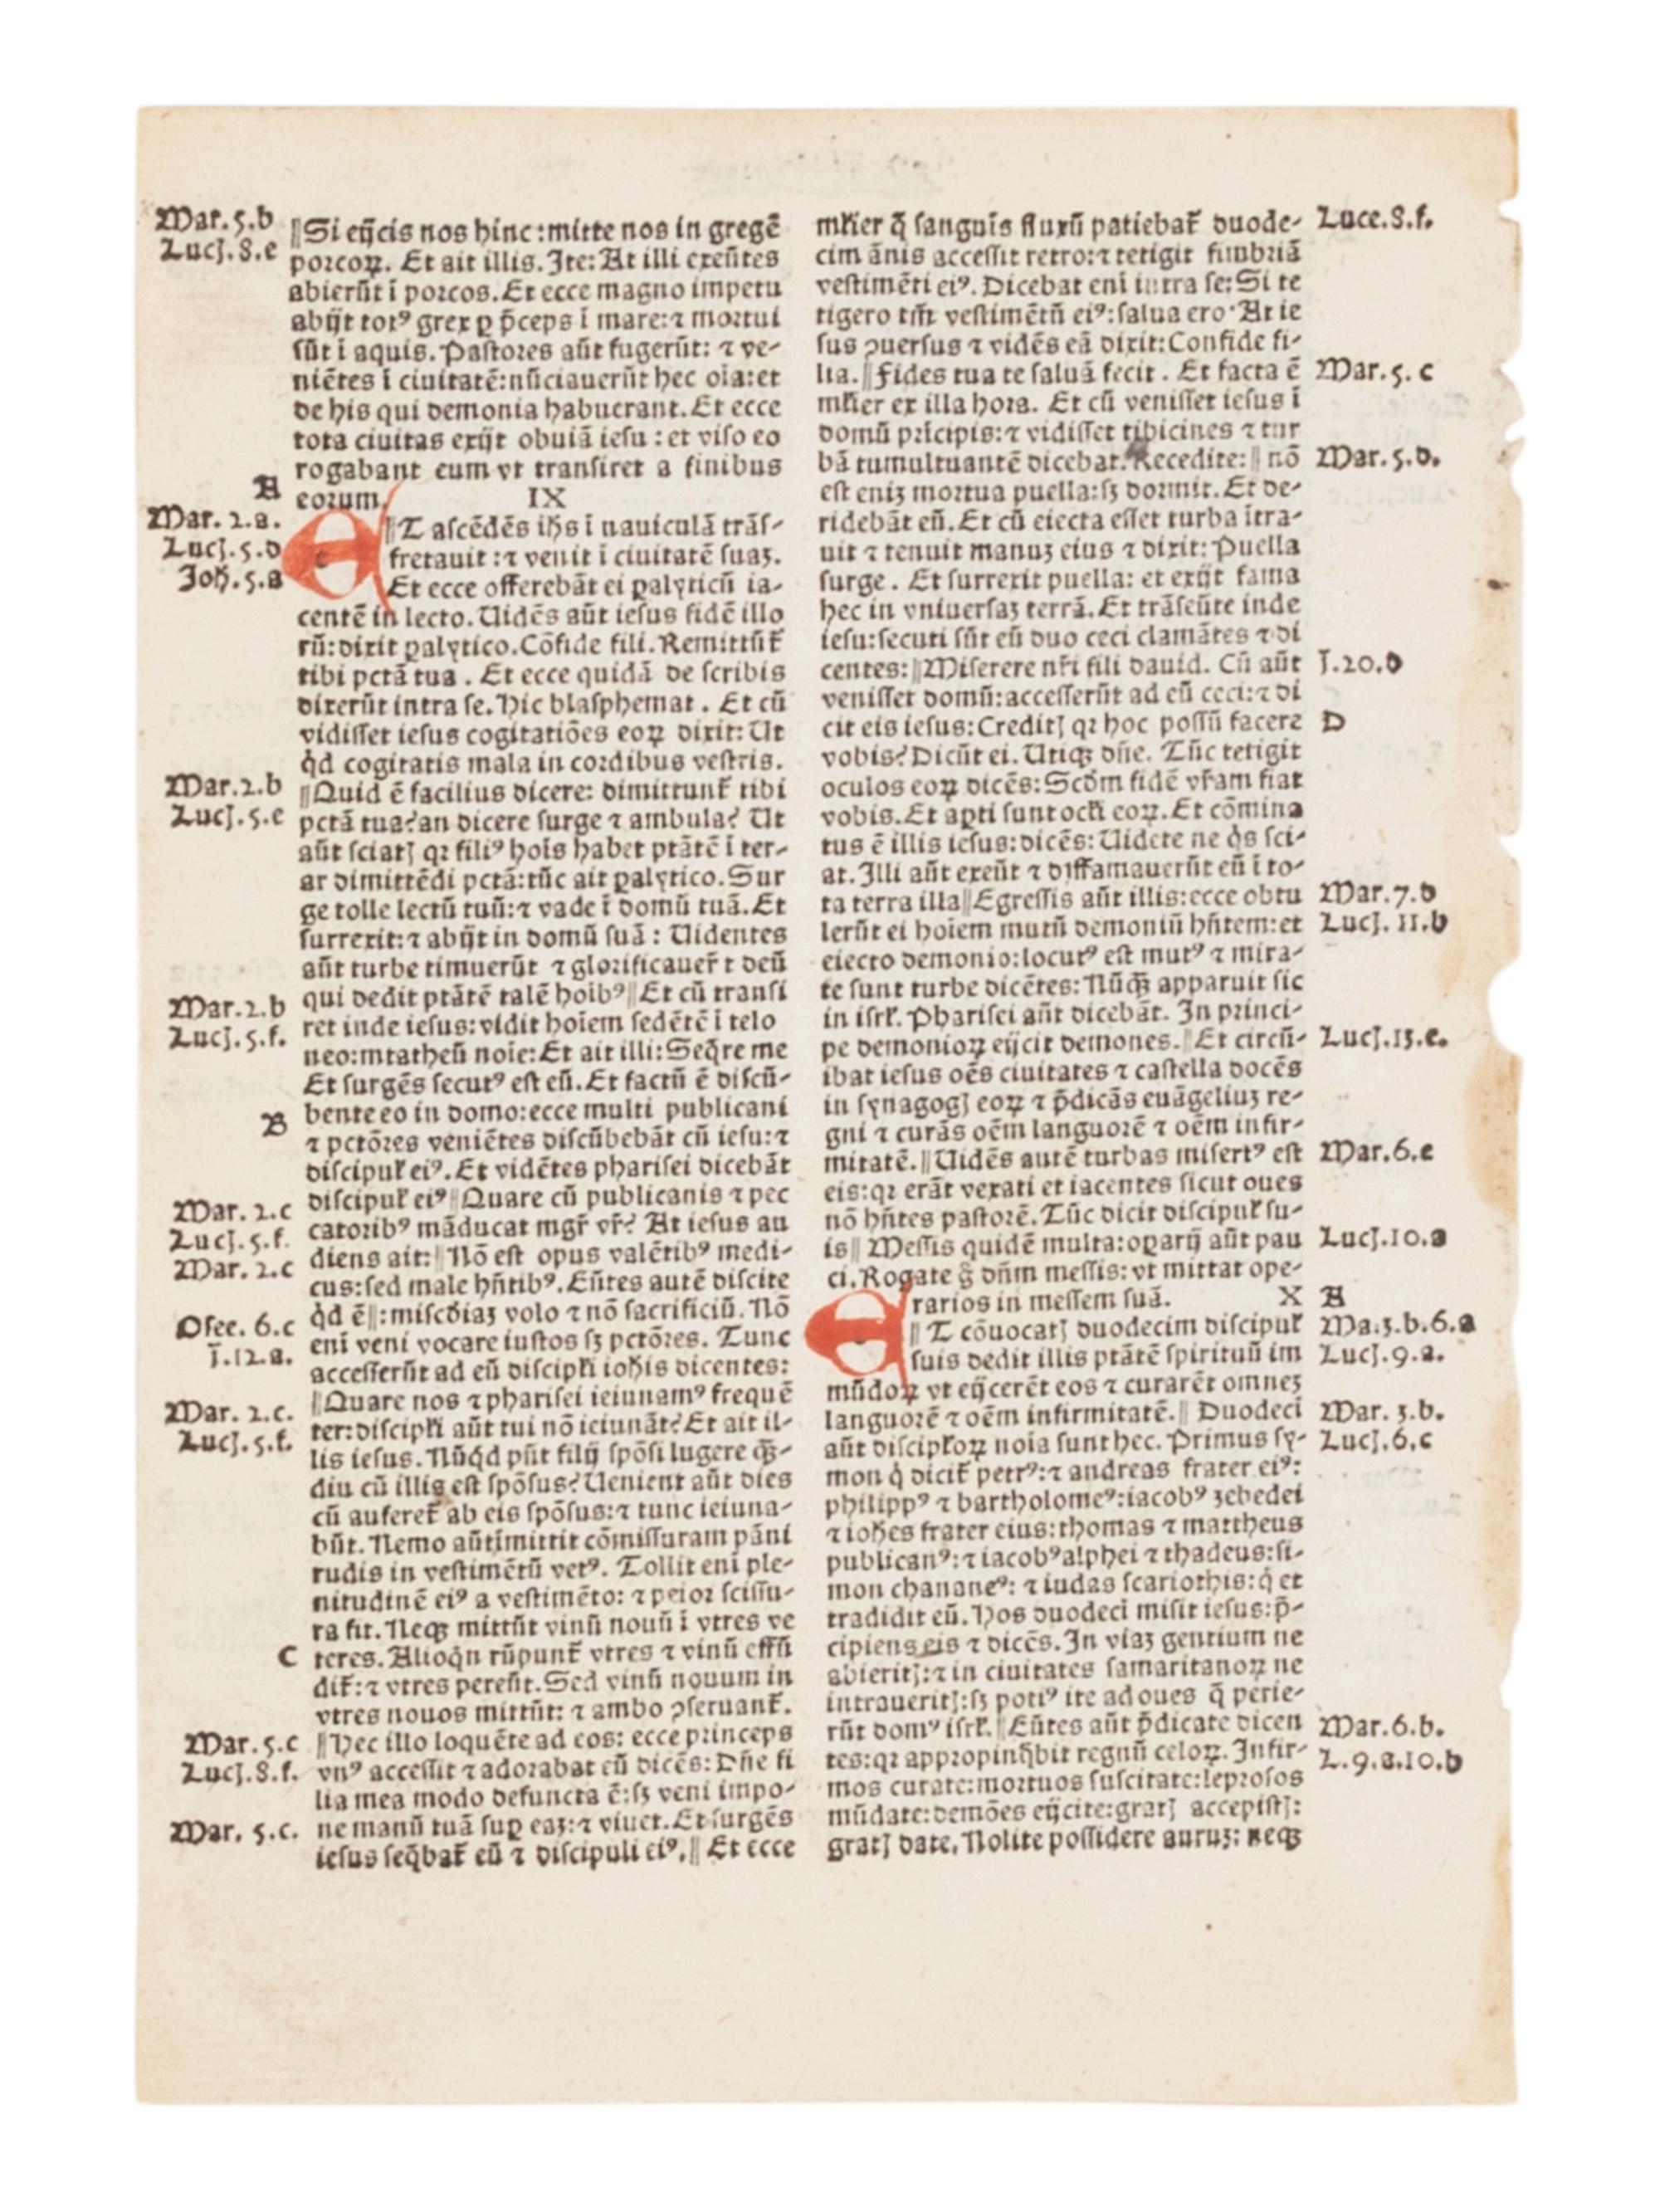 Mar. 5.b
Lucꝭ. 8.e
A
Mar. 2.a.
Lucꝭ. 5.d
Joh̄. 5.a
Mar. 2.b
Lucꝭ. 5.e
Mar. 2.b
Lucꝭ. 5.f.
B
Mar. 2.c
Lucꝭ. 5.f.
Mar. 2.c
Osee. 6.c
ī.12.a.
Mar. 2.c.
Lucꝭ. 5.f.
C
Mar. 5.c
Lucꝭ. 8.f.
Mar. 5.c.
‖Si eijcis nos hinc:mitte nos in gregē
porcoꝝ. Et ait illis. Ite: At illi exeūtes
abierūt ī porcos. Et ecce magno impetu
abijt totꝰ grex ꝑ p̄ceps ī mare:⁊ mortui
sūt ī aquis. Pastores aūt fugerūt: ⁊ ve-
niētes ī ciuitatē:nūciauerūt hec oīa:et
de his qui demonia habuerant. Et ecce
tota ciuitas exijt obuiā iesu : et viso eo
rogabant eum vt transiret a finibus
eorum. IX
E‖T ascēdēs ih̄s ī nauiculā trās-
fretauit :⁊ venit ī ciuitatē suaꝫ.
Et ecce offerebāt ei ꝑalyticū ia-
centē in lecto. Uidēs aūt iesus fidē illo
rū:dixit ꝑalytico. Cōfide fili. Remittūt̄
tibi pctā tua . Et ecce quidā de scribis
dixerūt intra se. Hic blasphemat . Et cū
vidisset iesus cogitatiōes eoꝝ dixit: Ut
qͥd cogitatis mala in cordibus vestris.
‖Quid ē facilius dicere: dimittunt̄ tibi
pctā tua? an dicere surge ⁊ ambula? Ut
aūt sciatꝭ qꝛ filiꝰ hoīs habet ptātē ī ter-
ar dimittēdi pctā:tūc ait ꝑalytico. Sur
ge tolle lectū tuū:⁊ vade ī domū tuā. Et
surrexit:⁊ abijt in domū suā : Uidentes
aūt turbe timuerūt ⁊ glorificauer̄ t deū
qui dedit ptātē talē hoībꝰ‖Et cū transi
ret inde iesus:vidit hoīem sedētē ī telo
neo:mtatheū noīe: Et ait illi: Seq̄re me
Et surgēs secutꝰ est eū. Et factū ē discū-
bente eo in domo:ecce multi publicani
⁊ pctōres veniētes discūbebāt cū iesu:⁊
discipul̄ eiꝰ. Et vidētes pharisei dicebāt
discipul̄ eiꝰ‖Quare cū publicanis ⁊ pec
catoribꝰ māducat mgr̄ vr̄? At iesus au
diens ait:‖Nō est opus valētibꝰ medi-
cus:sed male hn̄tibꝰ. Eūtes autē discite
qͥd ē‖:misc̄diaꝫ volo ⁊ nō sacrificiū. Nō
enī veni vocare iustos sꝫ pctōres. Tunc
accesserūt ad eū discipl̄i ioh̄is dicentes:
‖Quare nos ⁊ pharisei ieiunamꝰ frequē
ter:discipl̄i aūt tui nō ieiunāt? Et ait il-
lis iesus. Nūqͥd pn̄t filij spōsi lugere qꝫ̄-
diu cū illis est spōsus? Uenient aūt dies
cū auferet̄ ab eis spōsus:⁊ tunc ieiuna-
būt. Nemo aūtīmittit cōmissuram pāni
rudis in vestimētū vetꝰ. Tollit enī ple-
nitudinē eiꝰ a vestimēto: ⁊ peior scissu-
ra fit. Neqꝫ mittūt vinū nouū ī vtres ve
teres. Alioqͥn rūpunt̄ vtres ⁊ vinū effū
dit̄:⁊ vtres pereūt. Sed vinū nouum in
vtres nouos mittūt: ⁊ ambo ꝯseruant̄.
‖Hec illo loquēte ad eos: ecce princeps
vnꝰ accessit ⁊ adorabat eū dicēs: Dn̄e fi
lia mea modo defuncta ē:sꝫ veni impo-
ne manū tuā suꝑ eaꝫ:⁊ viuet. Et surgēs
iesus seq̄bat̄ eū ⁊ discipuli eiꝰ.‖ Et ecce
ml̄ier q̄ sanguīs fluxū patiebat̄ duode-
cim ānis accessit retro:⁊ tetigit fimbriā
vestimēti eiꝰ. Dicebat enī intra se: Si te
tigero tm̄ vestimētū eiꝰ:salua ero. At ie
sus ꝯuersus ⁊ vidēs eā dixit: Confide fi-
lia.‖Fides tua te saluā fecit . Et facta ē
ml̄ier ex illa hora. Et cū venisset iesus ī
domū prīcipis:⁊ vidisset tibicines ⁊ tur
bā tumultuantē dicebat. Recedite:‖ nō
est enīꝫ mortua puella:sꝫ dormit. Et de-
ridebāt eū. Et cū eiecta esset turba ītra-
uit ⁊ tenuit manuꝫ eius ⁊ dixit: Puella
surge . Et surrexit puella: et exijt fama
hec in vniuersaꝫ terrā. Et trāseūte inde
iesu:secuti sūt eū duo ceci clamātes ⁊ di
centes:‖Miserere nr̄i fili dauid. Cū aūt
venisset domū:accesserūt ad eū ceci:⁊ di
cit eis iesus: Creditꝭ qꝛ hoc possū facere
vobis? Dicūt ei. Utiqꝫ dn̄e. Tūc tetigit
oculos eoꝝ dicēs: Scd̄m fidē vr̄am fiat
vobis. Et aꝑti sunt ocl̄i eoꝝ. Et cōmina
tus ē illis iesus:dicēs: Uidete ne qͥs sci-
at. Illi aūt exeūt ⁊ diffamauerūt eū ī to-
ta terra illa‖Egressis aūt illis:ecce obtu
lerūt ei hoīem mutū demoniū hn̄tem:et
eiecto demonio:locutꝰ est mutꝰ ⁊ mira-
te sunt turbe dicētes: Nūqꝫ̄ apparuit sic
in isrl̄. Pharisei aūt dicebāt. In princi-
pe demonioꝝ eijcit demones.‖Et circū-
ibat iesus oēs ciuitates ⁊ castella docēs
in synagogꝭ eoꝝ ⁊ p̄dicās euāgeliuꝫ re-
gni ⁊ curās oēm languorē ⁊ oēm infir-
mitatē.‖Uidēs autē turbas misertꝰ est
eis:qꝛ erāt vexati et iacentes sicut oues
nō hn̄tes pastorē. Tūc dicit discipul̄ su-
is‖ Messis quidē multa:oꝑarij aūt pau
ci. Rogate g̊ dn̄m messis: vt mittat ope-
rarios in messem suā. X
E‖T cōuocatꝭ duodecim discipul̄
suis dedit illis ptātē spirituū im
mūdoꝝ vt eijcerēt eos ⁊ curarēt omneꝫ
languorē ⁊ oēm infirmitatē.‖ Duodecī
aūt discipl̄oꝝ noīa sunt hec. Primus sy-
mon qͥ dicit̄ petrꝰ:⁊ andreas frater eiꝰ:
philippꝰ ⁊ bartholomeꝰ:iacobꝰ zebedei
⁊ ioh̄es frater eius:thomas ⁊ mattheus
publicanꝰ:⁊ iacobꝰ alphei ⁊ thadeus:si-
mon chananeꝰ: ⁊ iudas scariothis:qͥ et
tradidit eū. Hos duodecī misit iesus:p̄-
cipiens eis ⁊ dicēs. In viaꝫ gentium ne
abieritꝭ:⁊ in ciuitates samaritanoꝝ ne
intraueritꝭ:sꝫ potiꝰ ite ad oues q̄ perie-
rūt domꝰ isrl̄.‖Eūtes aūt p̄dicate dicen
tes:qꝛ appropinq̄bit regnū celoꝝ. Infir-
mos curate:mortuos suscitate:leprosos
mūdate:demōes eijcite:gratꝭ accepistꝭ:
gratꝭ date. Nolite possidere auruꝫ: neqꝫ
Luce. 8.f.
Mar. 5. c
Mar. 5.d.
ī.20.d
D
Mar. 7.d
Lucꝭ. 11.b
Lucꝭ.13.e.
Mar.6.e
Lucꝭ.10.a
A
Ma.3.b.6.a
Lucꝭ.9.a.
Mar. 3.b.
Lucꝭ.6.c
Mar.6.b.
L.9.a.10.b